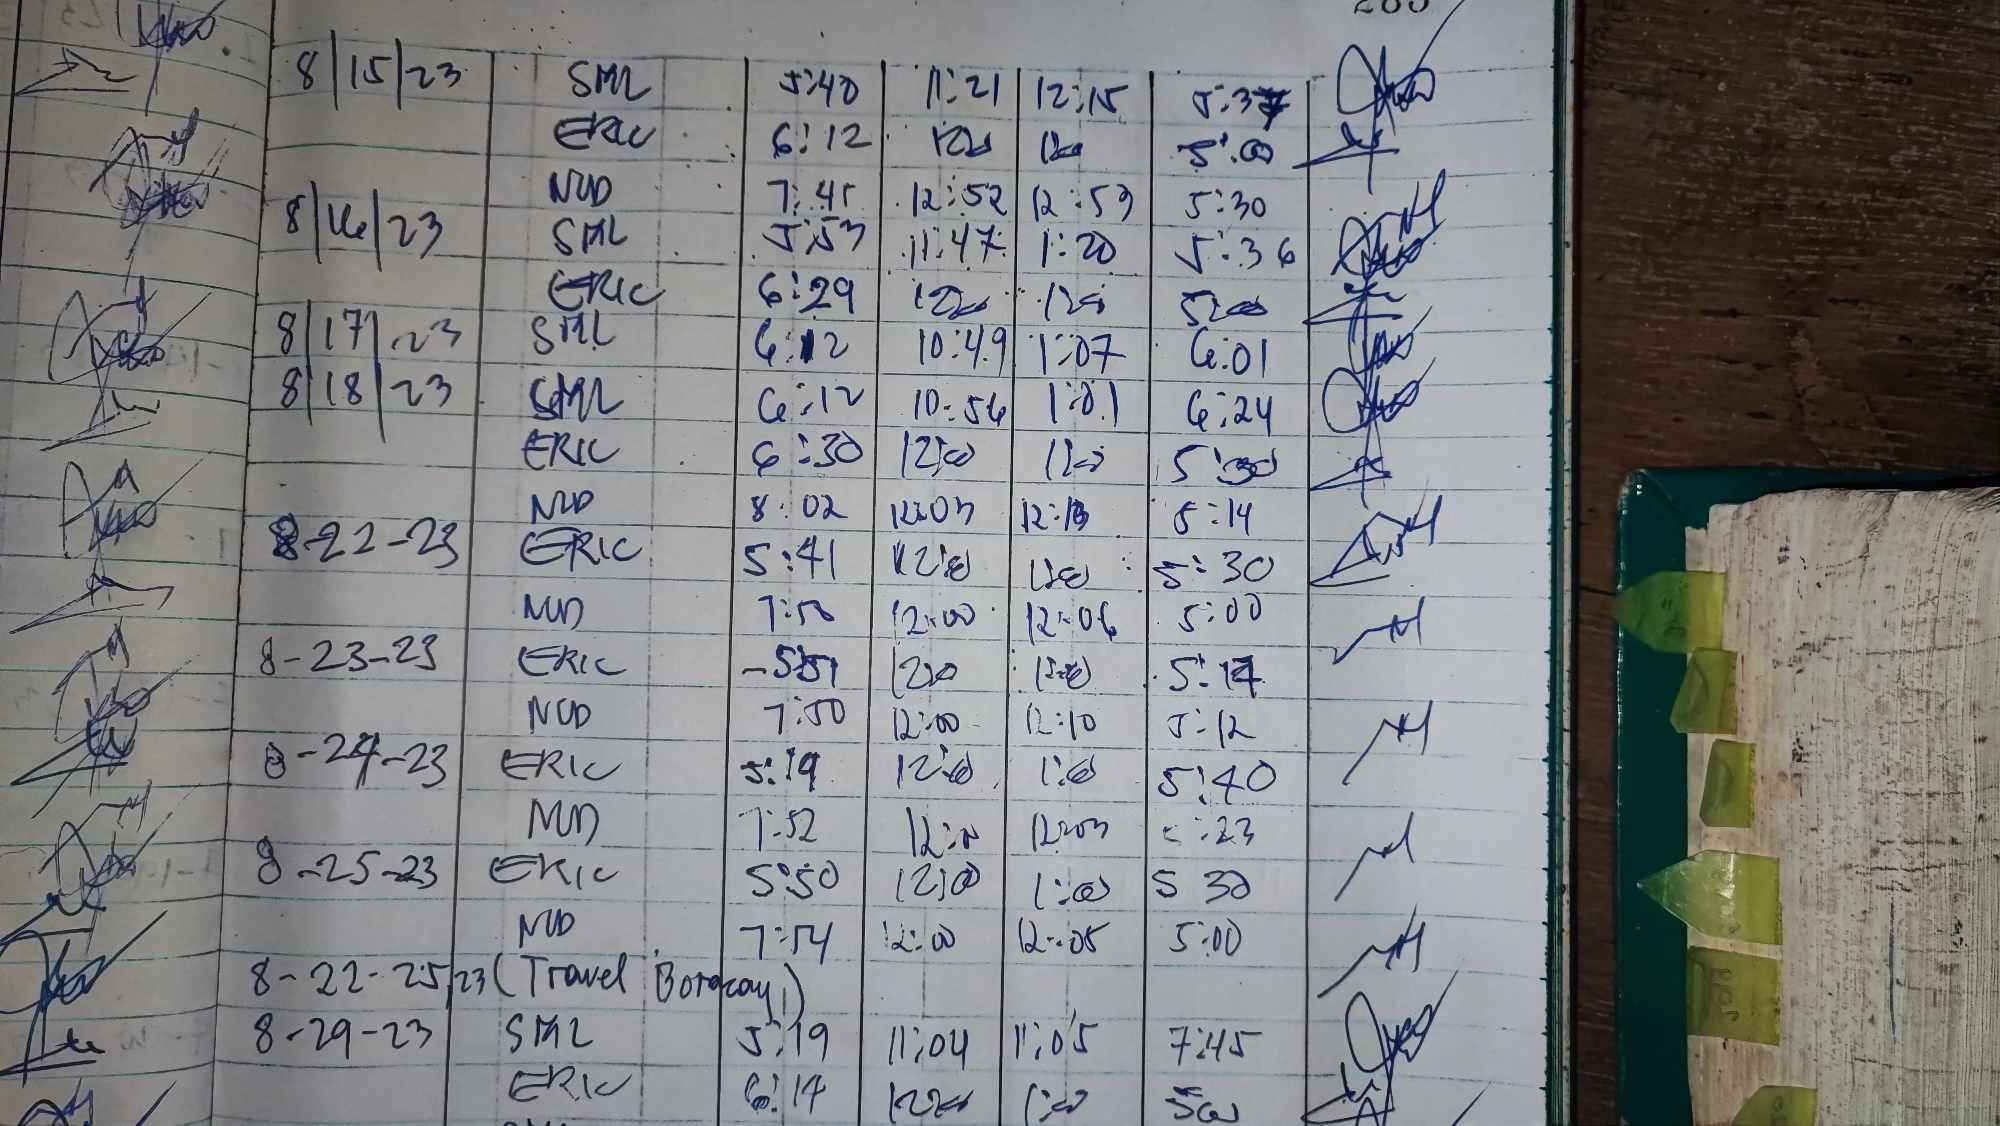 8/15/23 SML 5:40 11:21 12:15 5:37
ERIC 6:12 1200 5:00
NUD 7:45 12:52 12:53 5:30
8/16/23 SML 5:53 11:47 1:20 5:36
ERIC 6:29 1200 5200
8/17/23 SML 6:12 10:49 1:07 6:01
8/18/23 SML 6:12 10:56 1:01 6:24
ERIC 6:30 12:00 5:30
NUD 8:02 12:03 12:13 5:14
8-22-23 ERIC 5:41 12:00 1:00 5:30
NUD 7:50 12:00 12:06 5:00
8-23-23 ERIC 5:51 12:00 1:00 5:17
NUD 7:50 12:00 12:10 5:12
8-24-23 ERIC 5:19 12:00 1:00 5:40
NUD 7:52 12:03 :23
8-25-23 ERIC 5:50 12:00 1:00 5 30
NUD 7:54 12:00 12:05 5:00
8-22-25,23 (Travel Boracay)
8-29-23 SML 5:19 11:04 11:05 7:45
ERIC 6:17 1:00 500